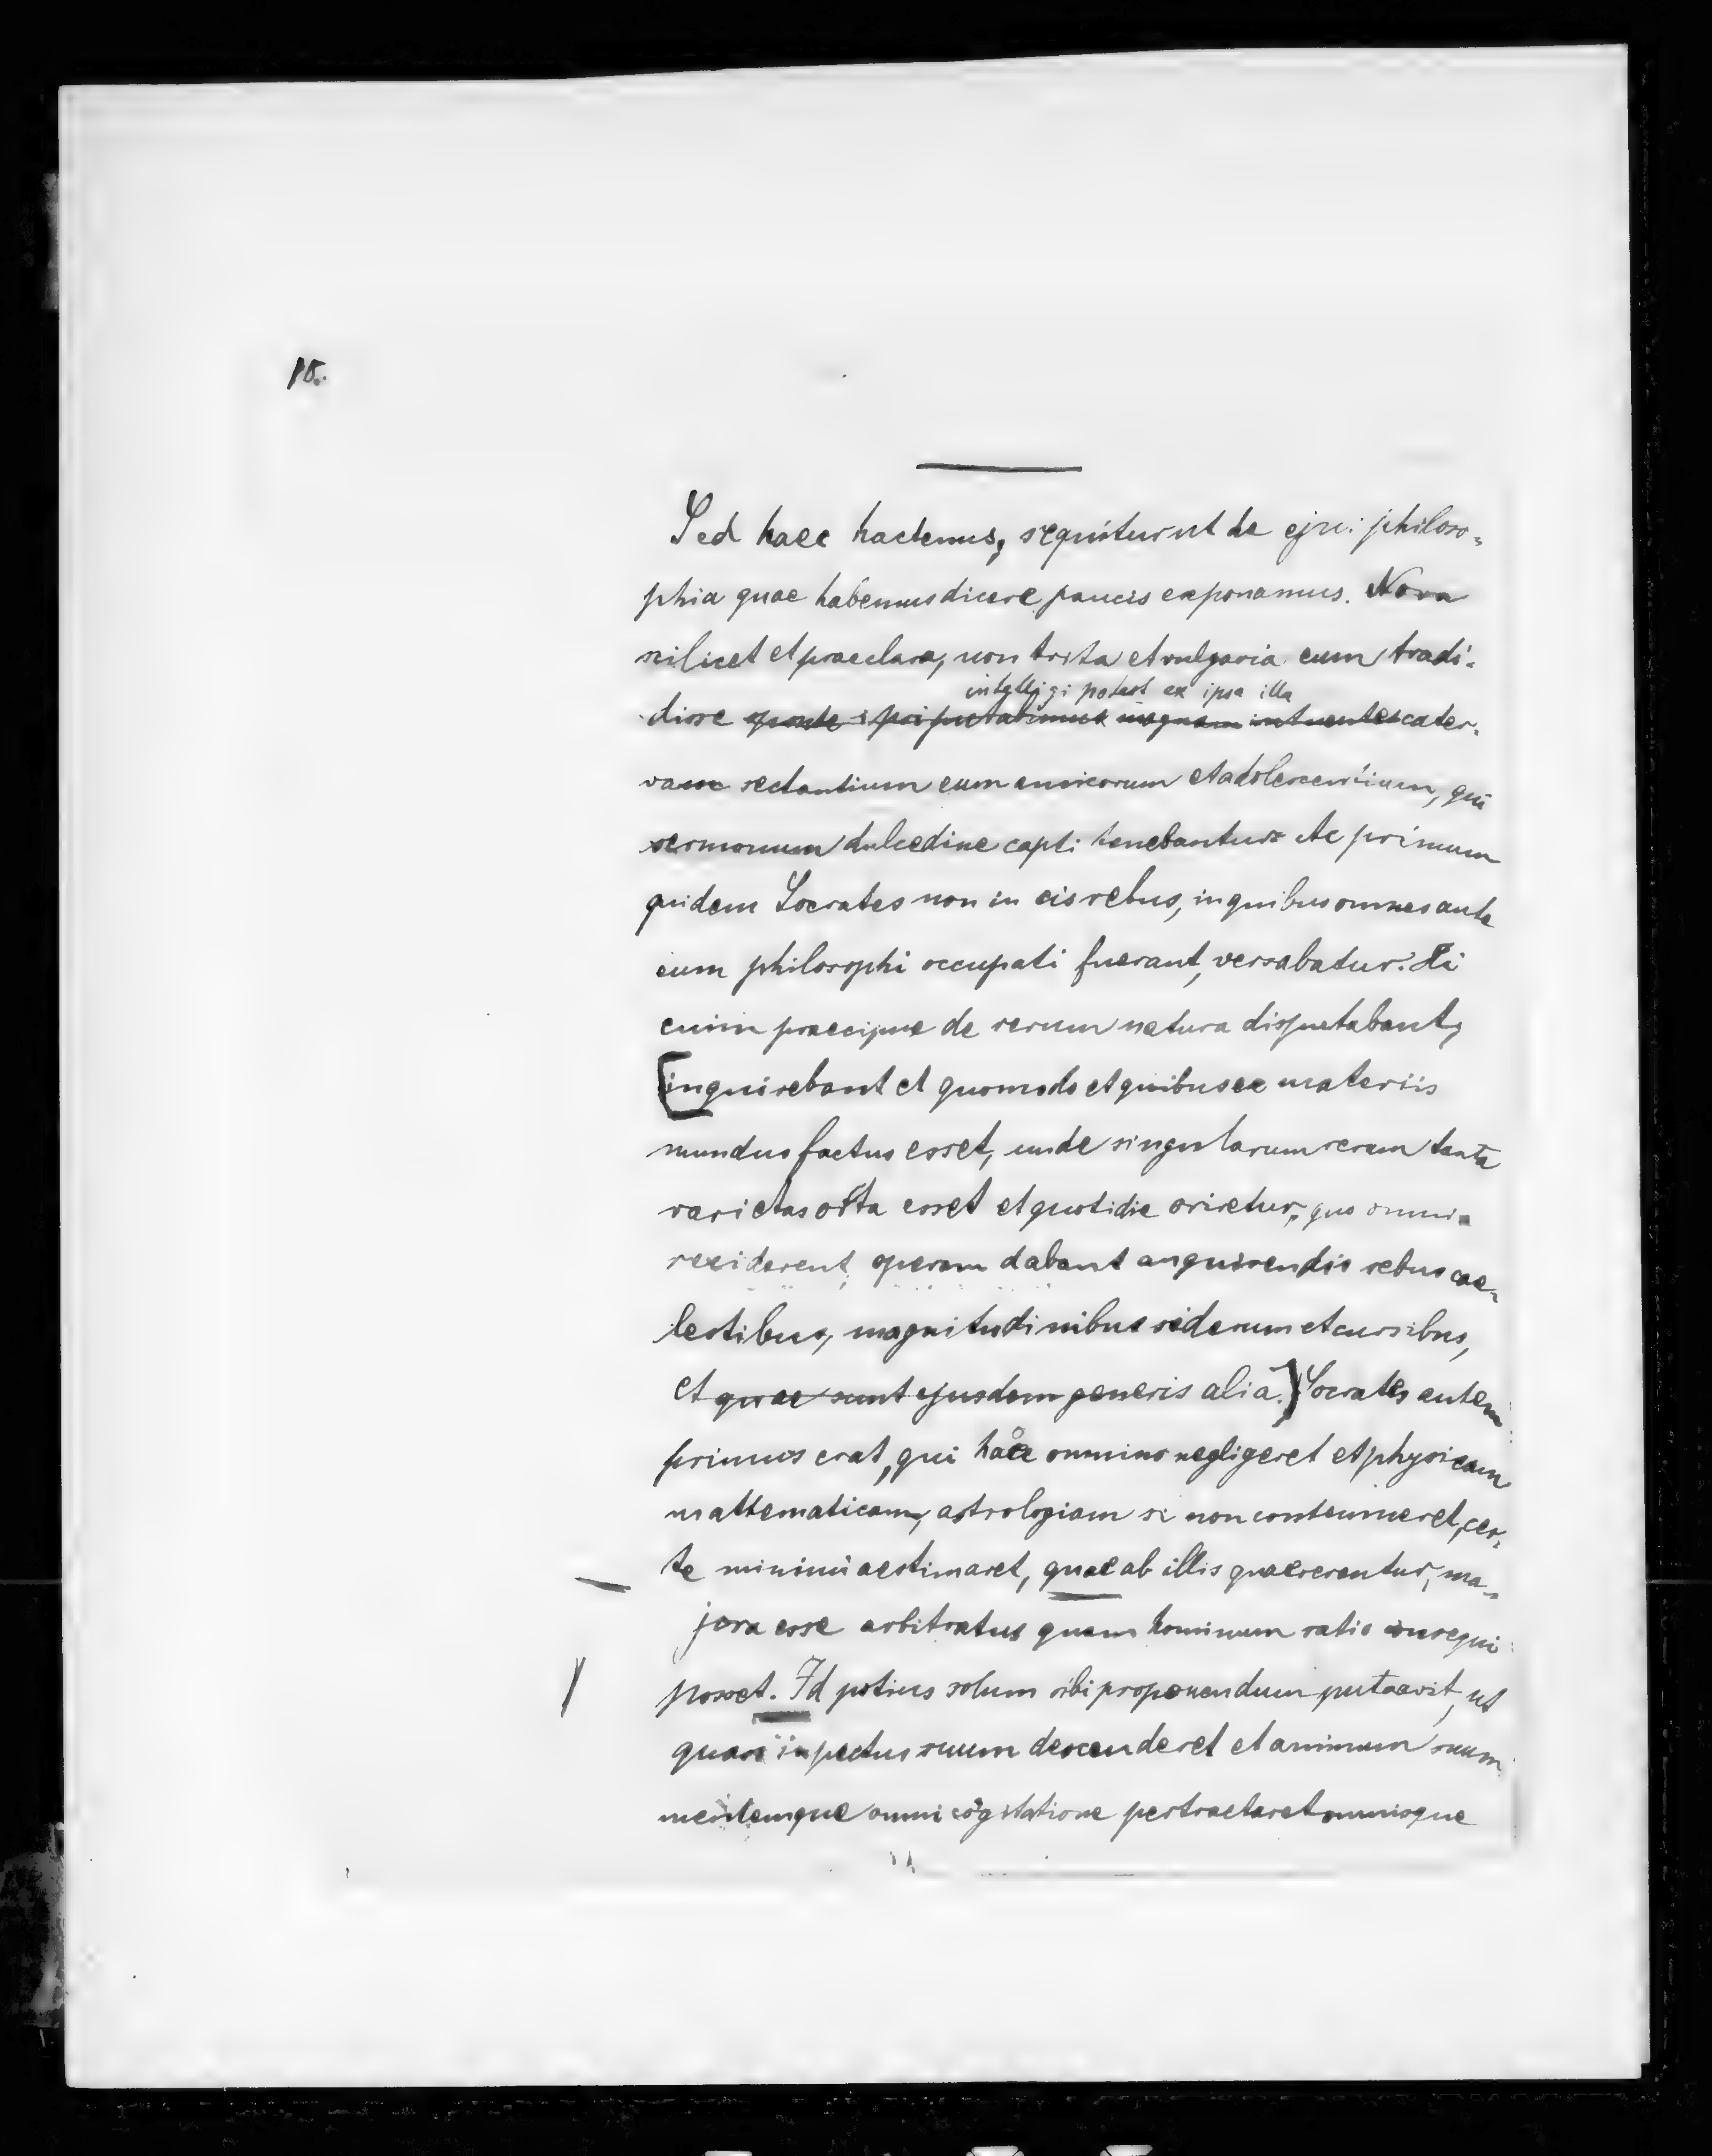 15.
Sed haec hactenus, sequitur ut de ejus philoso-
phia quae habemus dicere paucis exponamus. Nova
scilicet et praeclara, non trita et vulgaria eum tradi-
intelligi potest ex ipsa illa
disse sponte putabimus magnam intuentes cater-
vam sectantium eum amicorum et adolescentium, qui
sermonum dulcedine capti tenebantur. Ac primum
quidem Socrates non in eis rebus, in quibus omnes ante
eum philosophi occupati fuerant, versabatur. Hi
enim praecipue de rerum natura disputabant,
[inquirebant et quomodo et quibus ex materiis
mundus factus esset, unde singularum rerum tanta
varietas orta esset et quotidie oriretur, quo omnia
reciderent, operam dabant anquirendis rebus cae-
lestibus, magnitudinibus siderum et cursibus,
et quae sunt ejusdem generis alia.] Socrates autem
primus erat, qui haec omnino negligeret et physicam
mathematicam, astrologiam si non contemneret, cer-
te minimi aestimaret, quae ab illis quaererentur, ma-
jora esse arbitratus quam hominum ratio consequi
posset. Id potius solum sibi proponendum putavit, ut
quasi in pectus suum descenderet et animum suum
mentemque omni cogitatione pertractaret omnisque